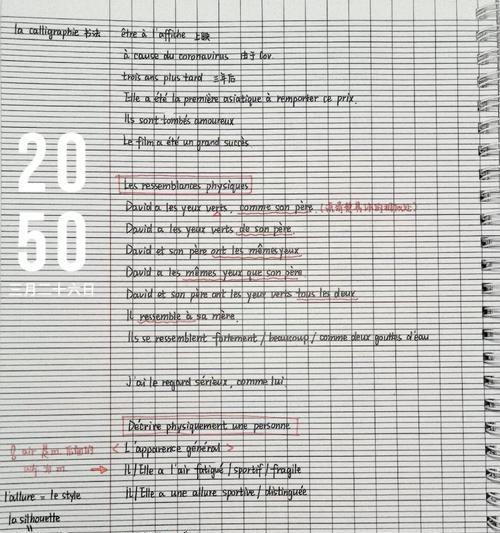 la calligraphie 书法
être à l'affiche 上映
à cause du coronavirus 由于Cov.
trois ans plus tard 三年后
Elle a été la première asiatique à remporter ce prix.
Ils sont tombés amoureux
Le film a été un grand succès
20
50
三月二十六日
Les ressemblances physiques
David a les yeux verts, comme son père.
David a les yeux verts de son père.
David et son père ont les mêmes yeux
David a les mêmes yeux que son père
David et son père ont les yeux verts tous les deux
Il ressemble à sa mère.
Ils se ressemblent fortement / beaucoup / comme deux gouttes d'eau
J'ai le regard sérieux, comme lui.
Décrire physiquement une personne
< L'apparence général >
air 是 m. 后面的
adj 为 m. →
Il/Elle a l'air fatigué / sportif / fragile
Il/Elle a une allure sportive / distinguée
l'allure = le style
la silhouette